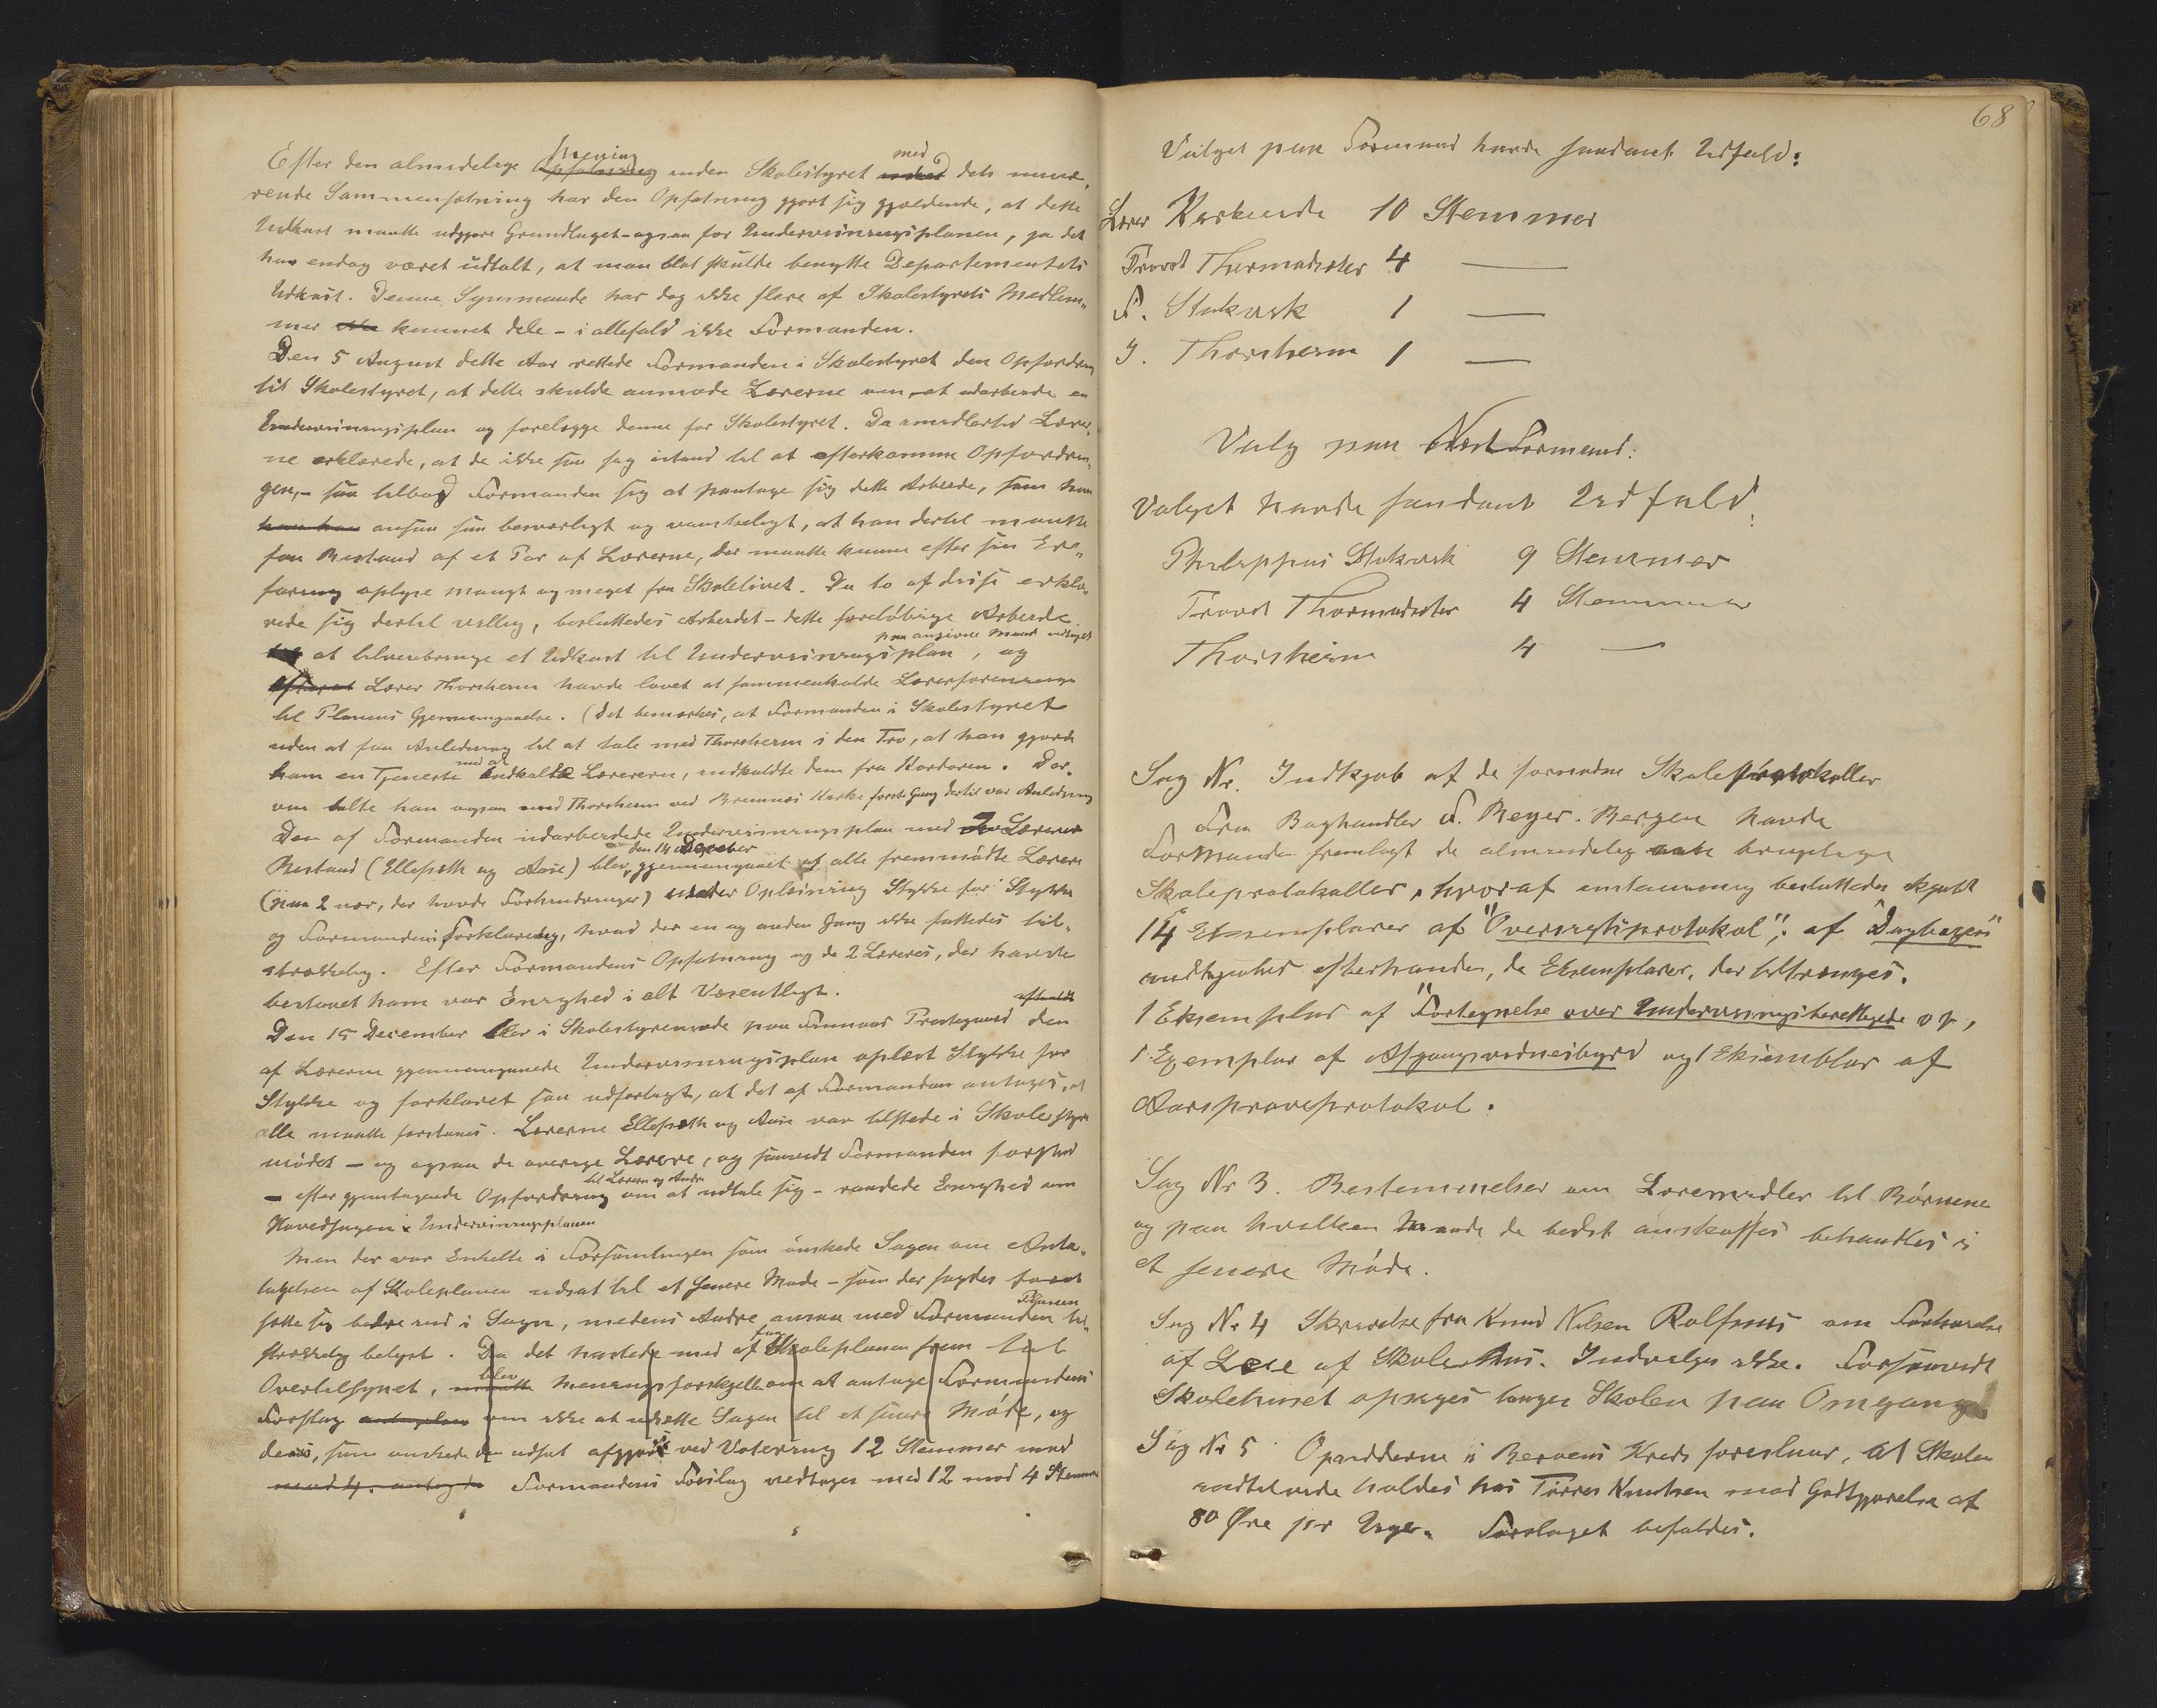 Efter den almindelige Mening inden Skolestyret med dets nuvæ„
rende Sammensætning har den Opfatning gjort sig gjældende, at dette
Udkast maatte udgjøre Grundlaget - ogsaa for Undervisningsplanen, ja det
har endog været udtalt, at man blot skulde benytte Departementets
Udkast. Denne Synsmaade har dog ikke flere af Skolestyrets Medlem„
mer kunnet dele - i allefald ikke Formanden.
Den 5 August dette Aar rettede Formanden i Skolestyret den Opfordring
til Skolestyret, at dette skulde anmode Lærerne om, at udarbeide en
Undervisningsplan og forelægge denne for Skolestyret. Da imidlertid Lærer„
ne erklærede, at de ikke saa sig istand til at efterkomme Opfordrin„
gen, - saa tilbød Formanden sig at paatage sig dette Arbeide, som han
han han ansaa saa besværligt og vanskeligt, at han dertil maatte
faa Bistand af et Par af Lærerne, der maatte kunne efter sin Er„
faring oplyse mangt og meget fra Skolelivet. Da to af disse erklæ„
rede sig dertil villig, besluttedes Arbeidet - dette foreløbige Arbeide
paa angivne Maade
at tilveiebringe et Udkast til Undervisningsplan, og
efterat Lærer Thorsheim havde lovet at sammenkalde Lærerforeningen
til Planens Gjennemgaaelse. (Det bemærkes, at Formanden i Skolestyret
uden at faa Anledning til at tale med Thorsheim i den Tro, at han gjorde
ham en Tjeneste med at indkalde Lærerne, indkaldte dem fra Kordoren. Der„
om talte han ogsaa med Thorsheim ved Bremnes Kirke første Gang dertil var Anledning
Den af Formanden udarbeidede Undervisningsplan med to Læreres
Bistand (Ellefsæth og Aase) blev den 14 December gjennemgaaet af alle fremmødte Lærere
(paa 2 nær, der havde Forhindringer) under Oplæsning Stykke for Stykke
og Formandens Forklaring, hvad der en og anden Gang ikke fattedes til„
strækkelig. Efter Formandens Opfatning og de 2 Læreres, der havde
bistaaet ham var Enighed i alt Væsentligt.
Den 15 December blev i Skolestyremøde paa Finnaas Prestegaard den
af Lærerne gjennemgaaede Undervisningsplan oplæst Stykke for
Stykke og forklaret saa udførligt, at det af Formanden antages, at
alle maatte forstaaes. Lærerne Ellefsæth og Aase var tilstede i Skolestyre
mødet - og ogsaa de øvrige Lærere, og saavidt Formanden forstod
til Lærere og Andre
- efter gjentagende Opfordring om at udtale sig - raadede Enighed om
Hovedsagen i Undervisningsplanen
Men der var Enkelte i Forsamlingen som ønskede Sagen om Anta„
tagelsen af Skoleplanen udsat til et senere Møde - som der sagdes for at
sætte sig bedre ind i Sagen, medens Andre ansaa med Formanden Planen til„
strækkelig belyst. Da det hastede med at faa Skoleplanen frem til
Overtilsynet, blev Meningsforskjellen om at antage Formandens
Forslag om ikke at udsætte Sagen til et senere Møde, og
deres, som ønskede den udsat afgjort ved Votering 12 Stemmer mod
mod 4. antog de Formandens Forslag vedtages med 12 mod 4 Stemmer
68
Valget paa Formand havde saadant Udfald:
Lærer Værkende 10 Stemmer
Trovat Thormodsæter 4 —
P. Stokvik 1 —
I. Thorsheim 1 —
Valg paa Næstformand.
Valget havde saadant Udfald:
Philippus Stokvik 9 Stemmer
Trovat Thormodsæter 4 Stemmer
Thorsheim 4 —
Sag Nr. Indkjøb af de fornødne Skoleprotokoller
Fra Boghandler F. Beyer. Bergen havde
Formanden fremlagt de almindelig brugelige
Skoleprotokoller, hvoraf enstemmig besluttedes kjøbt
14 Eksemplarer af "Oversigtsprotokol"; af "Dagbogen"
indkjøbes efterhaanden, de Eksemplarer, der tiltrænges.
1 Eksemplar af "Fortegnelse over Undervisningsberettigede op,
1 Exemplar af Afgangsvidnesbyrd og 1 Eksemblar af
Aarsprøveprotokol.
Sag Nr 3. Bestemmelser om Læremidler til Børnene
og paa hvilken Maade de bedst anskaffes behandles i
et senere Møde.
Sag Nr 4 Skrivelse fra Knud Nilsen Rolfsnes om Forhøielse
af Leie af Skolehus. Indvilges ikke. Forsaavidt
Skolehuset opsiges bringes Skolen paa Omgang
Sag Nr 5 Opsidderne i Berveni Kreds foreslaar, at Skolen
indtilvidere holdes hos Tørres Knutsen mod Godtgjørelse af
80 Øre pr Uge. Forslaget bifaldes.